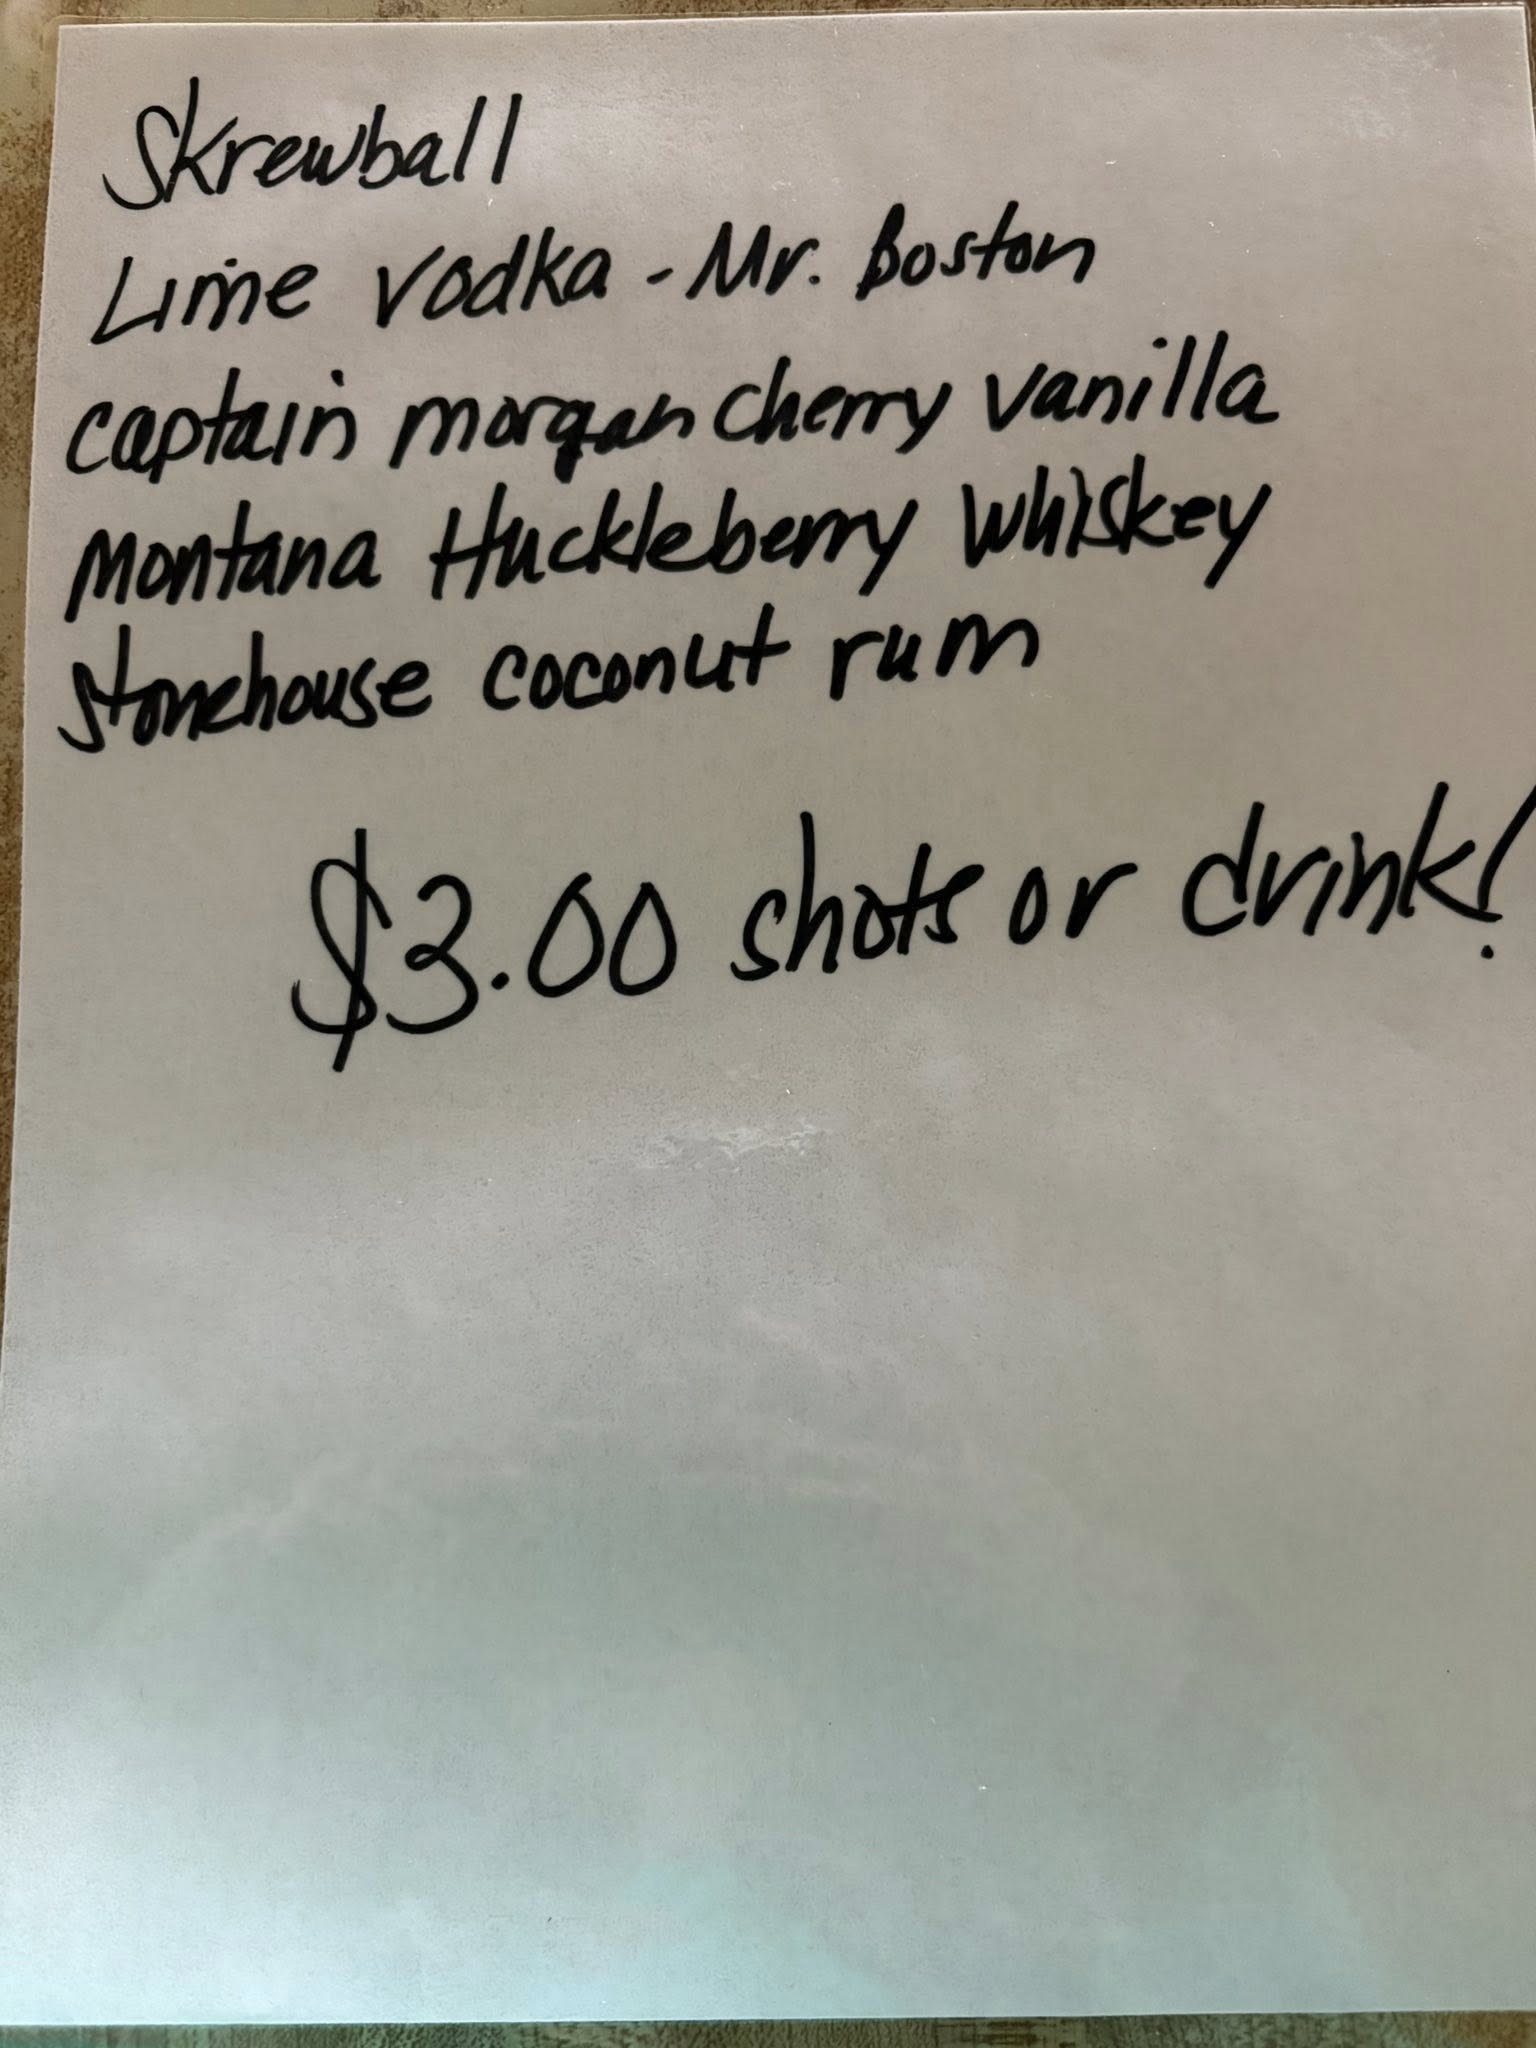 Skrewball
Lime vodka - Mr. Boston
captain morgan cherry vanilla
Montana Huckleberry Whiskey
stonehouse coconut rum
$3.00 shots or drink!